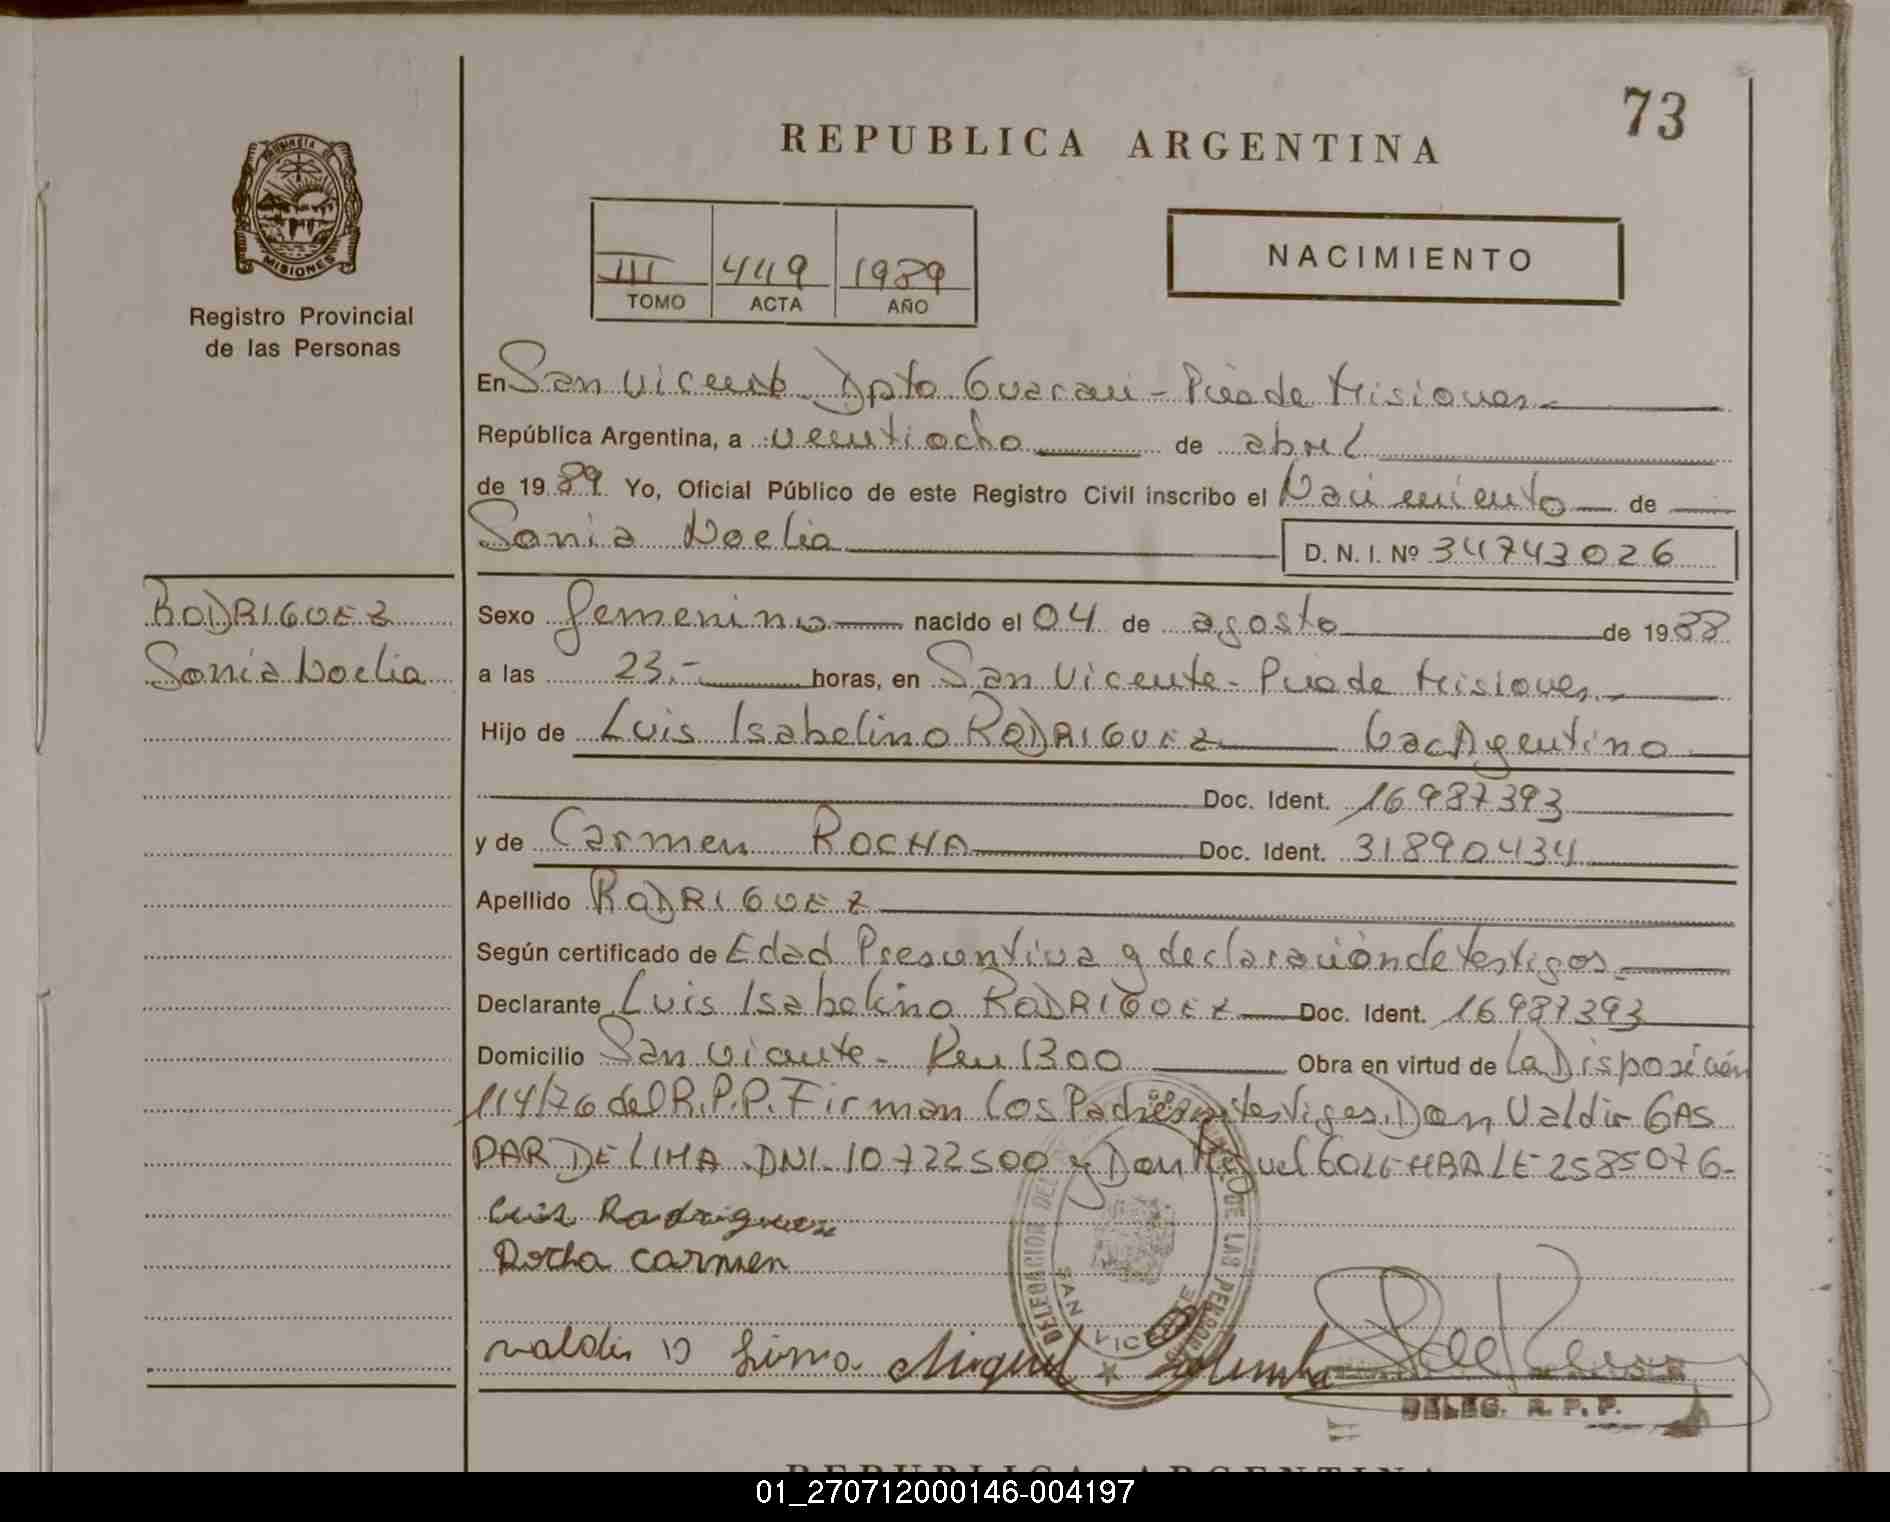 73
REPUBLICA ARGENTINA
PROVINCIA DE
MISIONES
Registro Provincial
de las Personas
III 449 1989
TOMO ACTA AÑO
NACIMIENTO
En San Vicente Dpto Guarani - Pcia de Misiones
República Argentina, a veintiocho de abril
de 1989 Yo, Oficial Público de este Registro Civil inscribo el Nacimiento de
Sonia Noelia D. N. I. Nº 34743026
RODRIGUEZ
Sonia Noelia
Sexo femenino nacido el 04 de agosto de 1988
a las 23.- horas, en San Vicente - Pcia de Misiones
Hijo de Luis Isabelino RODRIGUEZ Nac Argentino
Doc. Ident. 16987393
y de Carmen ROCHA Doc. Ident. 31890434
Apellido RODRIGUEZ
Según certificado de Edad Presuntiva y declaración de testigos
Declarante Luis Isabelino RODRIGUEZ Doc. Ident. 16987393
Domicilio San Vicente - Km 1300 Obra en virtud de La Disposición
114/76 del R.P.P. Firman los Padres testigos Don Valdir GAS
PAR DE LIMA DNI 10722500 y Don Miguel GOLEMBA LE 2585076-
Luis Rodriguez
Rocha Carmen
valdir D Lima Miguel Golemba
DELEGACION DE LAS PERSONAS
SAN VICENTE
DELEG. R. P. P.
REPUBLICA ARGENTINA
01_270712000146-004197